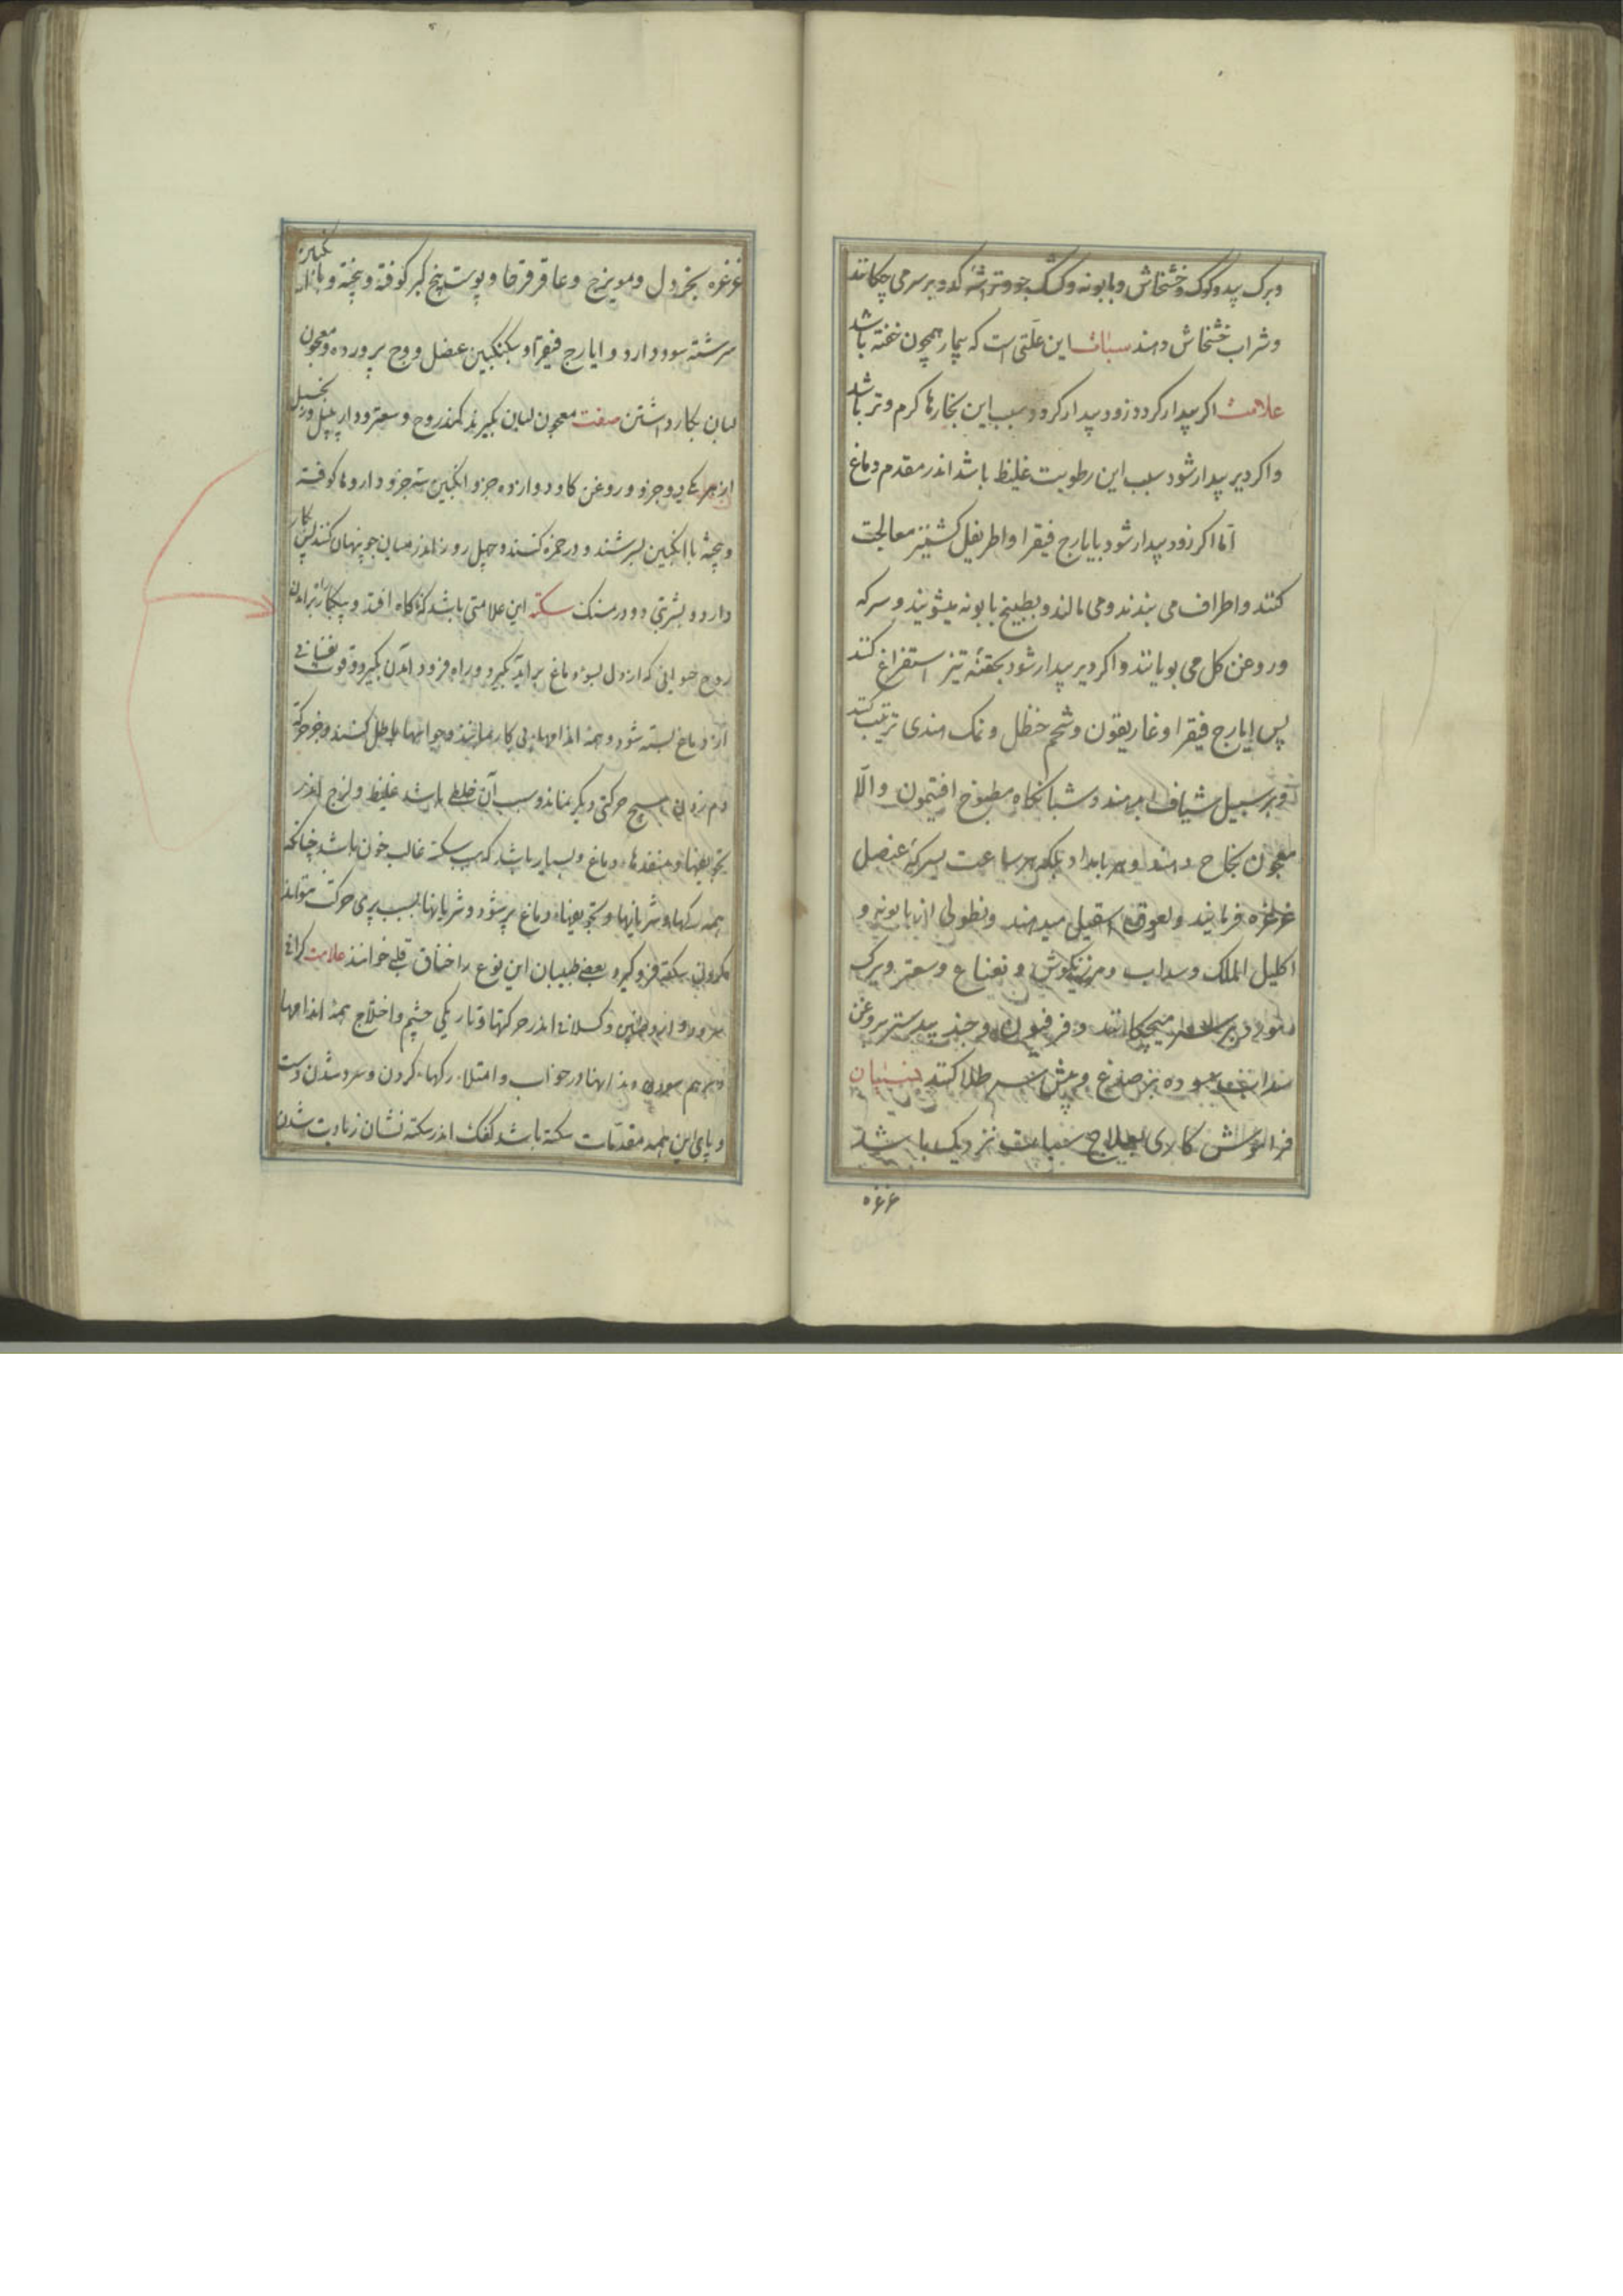 وبرک بید وکوک وخشخاش وبابونه وکشک جو وتراشه کدو بر سر می چکانند
وشراب خشخاش دهند سبات این علتی است که بیمار همچون خفته باشد
علامت اکر بیدار کردد زود بیدار کردد سبب این بخارها کرم وتر باشد
واکر دیر بیدار شود سبب این رطوبت غلیظ باشد اندر مقدم دماغ
اما اکر زود بیدار شود بایارج فیقرا واطریفل کشنیز معالجت
کنند واطراف می بندند ومی مالند وبطبیخ بابونه میشویند وسرکه
وروغن کل می بویانند واکر دیر بیدار شود بحقنه تیز استفراغ کنند
پس ایارج فیقرا وغاریقون وشحم حنظل ونمک هندی ترتیب کنند
وبر سبیل شیاف بدهند وشبانکاه مطبوخ افتیمون والا
معجون نجاح دهند وهر بامداد بلکه هر ساعت بسرکه عنصل
غرغره فرمایند ولعوق اسقیل میدهند ونطولی از بابونه و
اکلیل الملک وسداب ومرزنکوش ونعناع وسعتر وبرک
بر سر میچکانند وفرفیون وجندبیدستر بروغن
سداب سوده بر صدغ وپیش سر طلا کنند نسیان
فراموش کاری بعلاج سبات نزدیک باشد
۵۶۶
غرغره بخردل ومویزج وعاقرقرحا وپوست بیخ کبر کوفته وبیخته وبا انکبین
سرشته سود دارد وایارج فیقرا وسکنکبین عنصل ووج پرورده ومعجون
لبان بکار داشتن صفت معجون لبان بکیرند کندر ووج وسعتر ودارپلپل وزنجبیل
از هر یکی دو جزو وروغن کاو دوازده جزو انکبین سه جزو داروها کوفته
وبیخته با انکبین بسرشند ودر خمره کنند وچهل روز اندر میان جو پنهان کنند پس بکار
دارد وشربتی دو درمسنک سکته این علامتی باشد که ناکاه افتد وبیکبار
روح حیوانی که از دل بسوی دماغ برآید بکیرد وراه فرود آمدن بکیرد وقوت نفسانی
از دماغ بسته شود وهمه اندامهاء بی کار بمانند وحواسها باطل کنند وجز حرکت
دم زدن هیچ حرکتی دیکر نماند وسبب آن خلطی باشد غلیظ ولزج اندر
تجویفها ومنفذهاء دماغ وبسیار باشد که سبب سکته غالب خون باشد چنانکه
همه رکها وشریانها وتجویفهاء دماغ پر شود وشریانها بسبب پری حرکت نتواند
کردن سکته فرو کیرد وبعضی طبیبان این نوع را خناق قلبی خوانند علامت کرانی
سر ودوار وطنین وکسلانی اندر حرکتها وتاریکی چشم واختلاج همه اندامها
وبرهم سودن دندانها در خواب وامتلاء رکهاء کردن وسرد شدن دست
وپای این همه مقدمات سکته باشد کفک اندر سکته نشان زیادت شدن